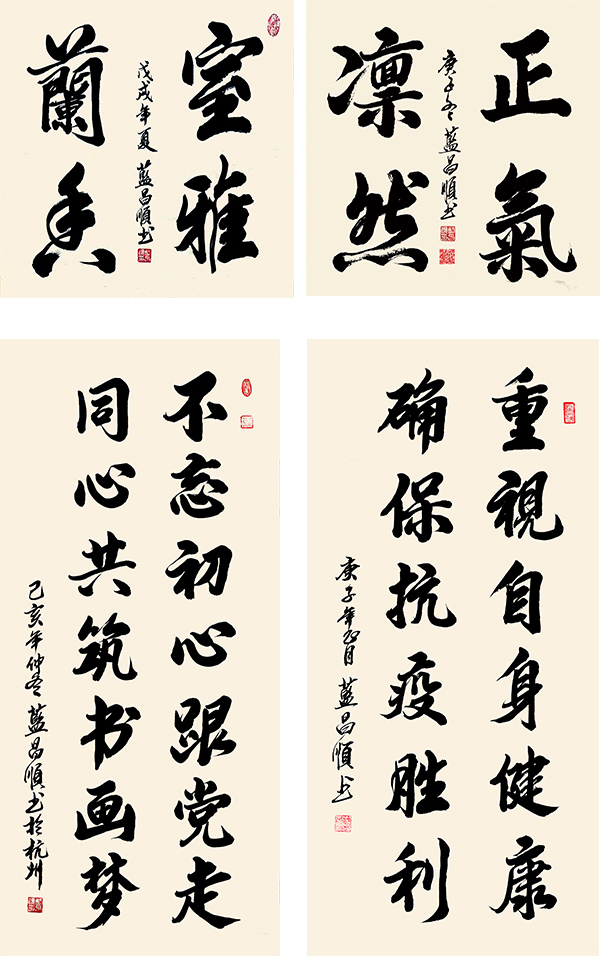 室雅
蘭香
戊戌年夏 藍昌順书
正氣
凛然
庚子冬 藍昌順书
不忘初心跟党走
同心共筑书画梦
己亥年仲冬 藍昌順书於杭州
重視自身健康
确保抗疫胜利
庚子年正月 藍昌順书